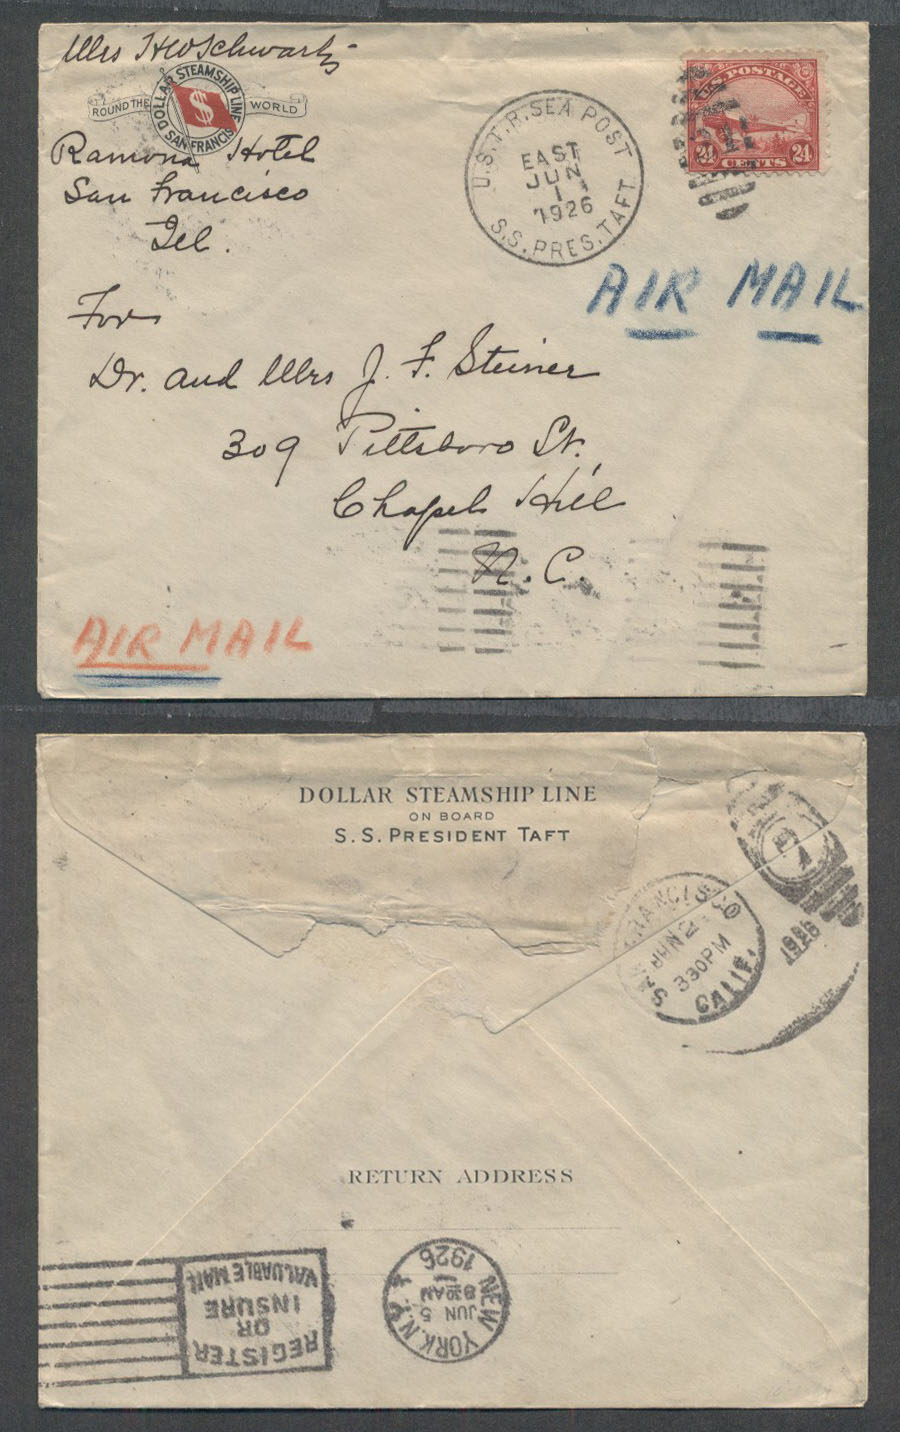 Mrs H W Schwartz
ROUND THE WORLD
DOLLAR STEAMSHIP LINE
SAN FRANCISCO
$
Ramona Hotel
San Francisco
U.S.T.R. SEA POST
EAST
JUN
1
1926
S.S. PRES. TAFT
U.S. POSTAGE
24 CENTS 24
AIR MAIL
For
Dr. and Mrs J. F. Steiner
309 Pittsboro St.
Chapel Hill
N.C.
AIR MAIL
DOLLAR STEAMSHIP LINE
ON BOARD
S.S. PRESIDENT TAFT
SAN FRANCISCO
JUN 2
330 PM
CALIF.
1926
RETURN ADDRESS
NEW YORK, N.Y.
JUN 5
8 30 AM
1926
REGISTER
OR
INSURE
VALUABLE MAIL